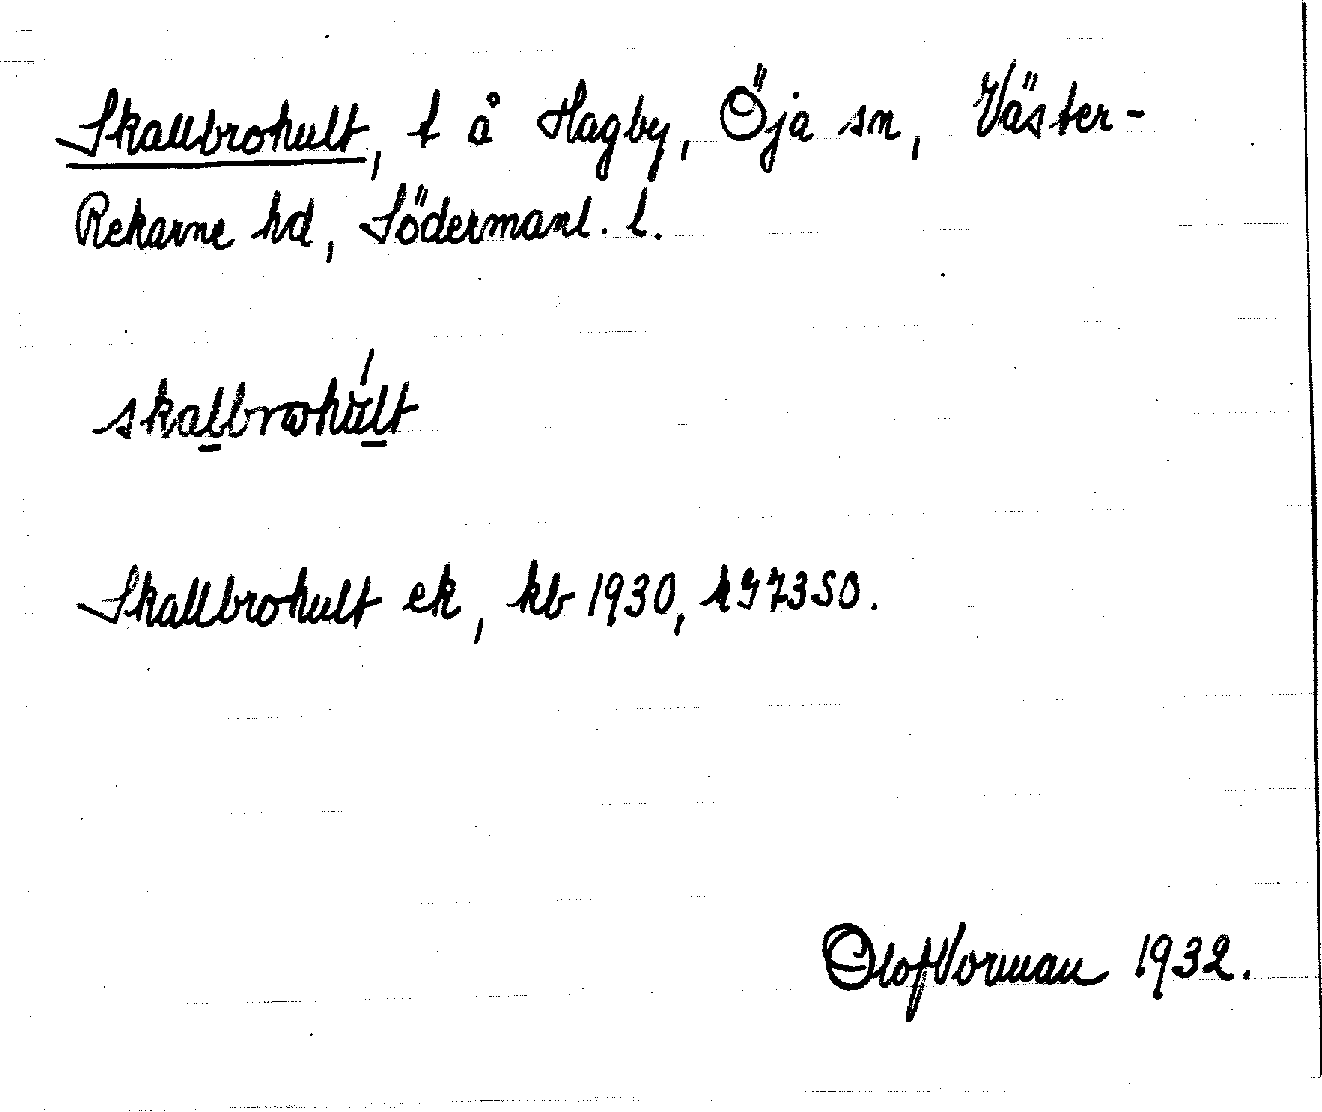 Skallbrohult, t å Hagby, Öja sn, Väster-
Rekarne hd, Södermanl. l.
skalbrohúlt
Skallbrohult ek, kb 1930,
Olof Vorman 1932.